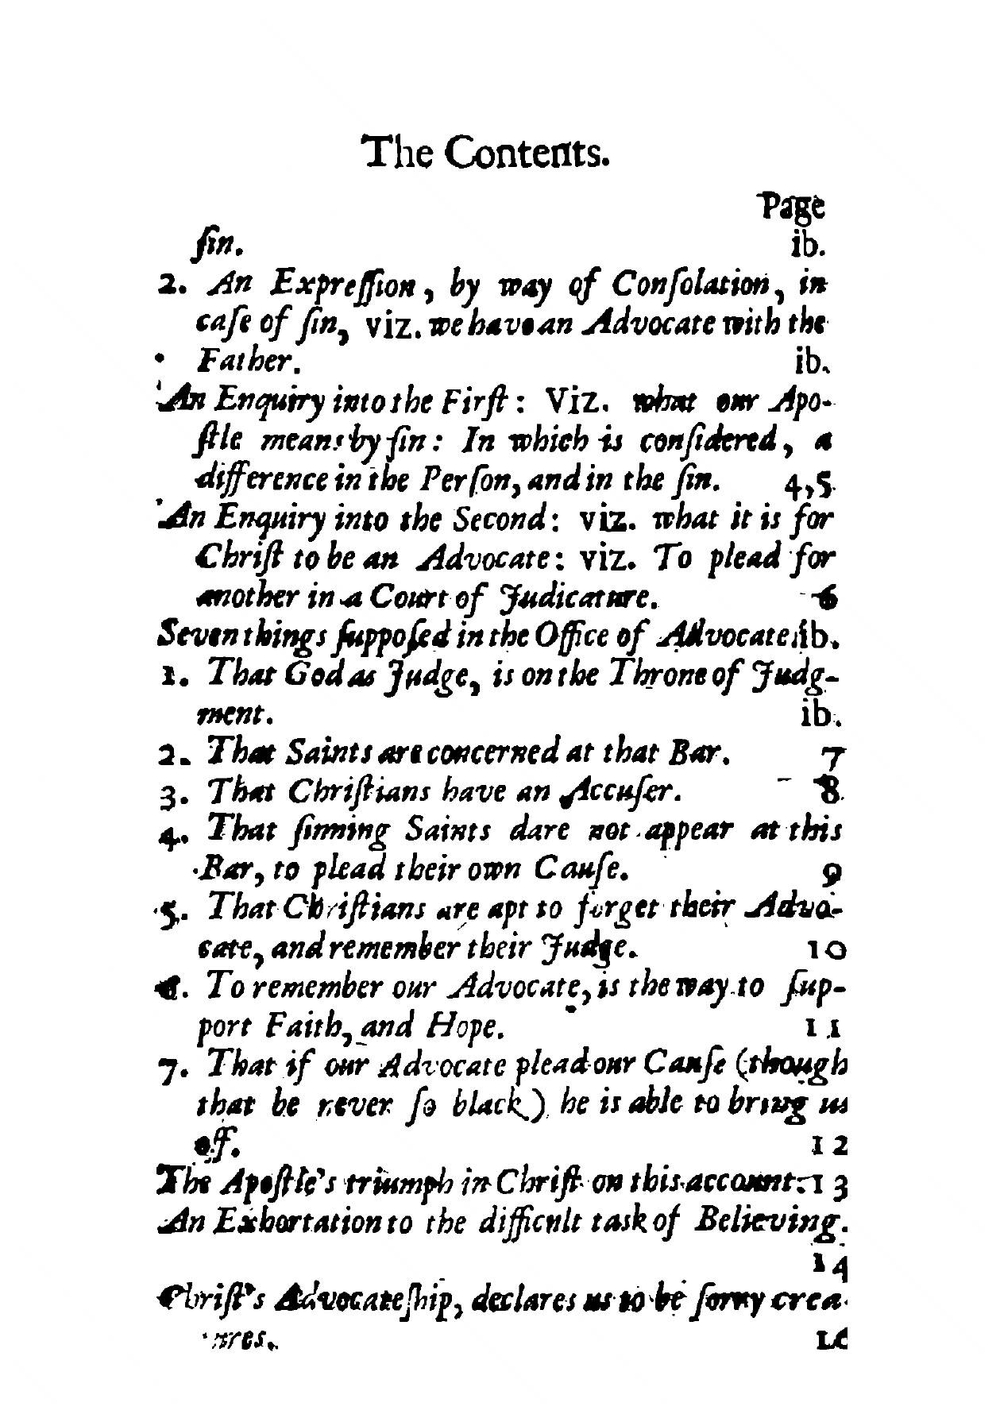 The Contents.
Page
ſin. ib.
2. An Expreſſion, by way of Conſolation, in
caſe of ſin, viz. we have an Advocate with the
Father. ib.
An Enquiry into the Firſt: Viz. what our Apo-
ſtle means by ſin: In which is conſidered, a
difference in the Perſon, and in the ſin. 4,5
An Enquiry into the Second: viz. what it is for
Chriſt to be an Advocate: viz. To plead for
another in a Court of Judicature. 6
Seven things ſuppoſed in the Office of Advocate. ib.
1. That God as Judge, is on the Throne of Judg-
ment. ib.
2. That Saints are concerned at that Bar. 7
3. That Chriſtians have an Accuſer. 8
4. That ſinning Saints dare not appear at this
Bar, to plead their own Cauſe. 9
5. That Chriſtians are apt to forget their Advo-
cate, and remember their Judge. 10
6. To remember our Advocate, is the way to ſup-
port Faith, and Hope. 11
7. That if our Advocate plead our Cauſe (though
that be never ſo black) he is able to bring us
off. 12
The Apoſtle's triumph in Chriſt on this account. 13
An Exhortation to the difficult task of Believing.
14
Chriſt's Advocateſhip, declares us to be ſorry crea-